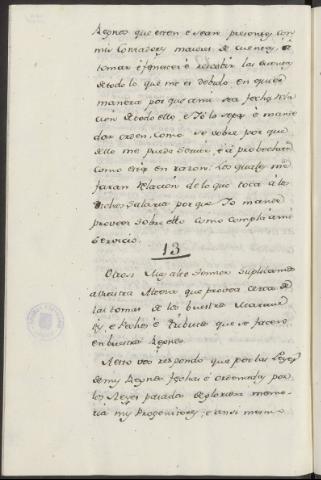 Regnos que esten e sean presentes con
mis Contadores maiores de cuentas, á
tomar é fenecer é rematar las cuentas
de todo lo que me es debido en qualquier
manera por que á mi sea fecha rela
cion de todo ello, e Yo lo sepa é mande
dar orden, como se cobre por que
dello me pueda servir, é á probechar
como era en razon: Los quales me
faran relacion de lo que toca á los
dichos Salarios por que Yo mande
proveer sobre ello como cumpla á mi
servicio.
13
Otrosi Muy alto Sennor suplicamos
á vuestra Alteza que provea cerca de
las tomas de los vuestros Maravedi
s, e Pechos é Tributos que se facen
en vuestros Regnos.
A esto vos respondo que por las Leyes
de mis Regnos fechas é ordenadas por
los Reyes pasados de gloriosa memo
ria mis Progenitores, e ansi mismo